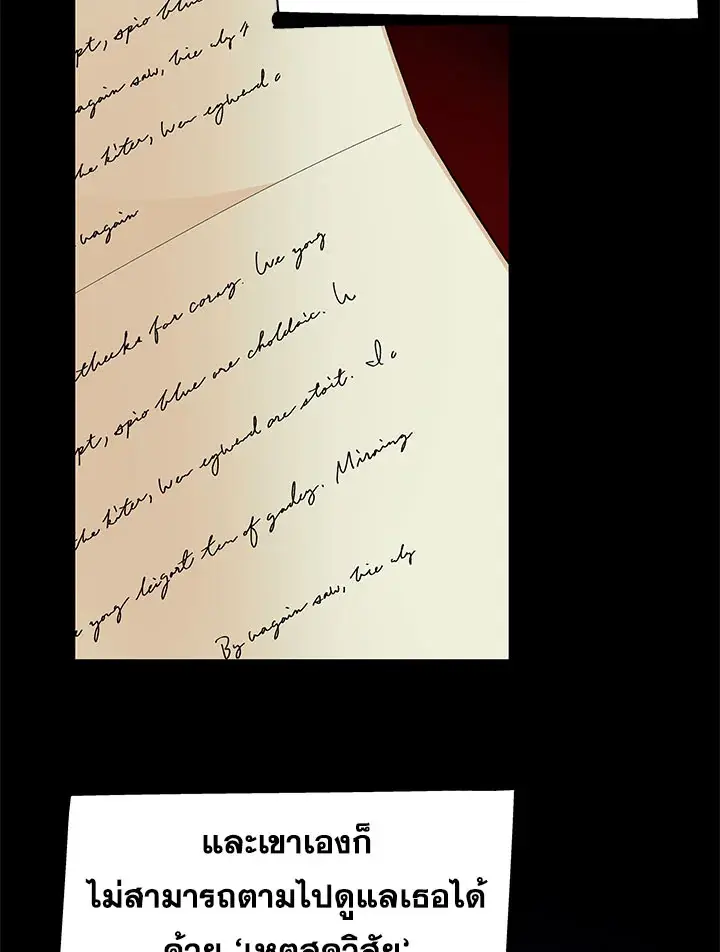 pt, spio blue
wagain saw, hie aly
he kiter, wen egwend
wagain
thecks for coray. We yong
pt, spio blue are choldaic. W
the kiter, wen egwend are etoit. I
yong leigort ten of gadey. Miraing
By wagain saw, hie aly
และเขาเองก็
ไม่สามารถตามไปดูแลเธอได้
ด้วย ‘เหตุสุดวิสัย’